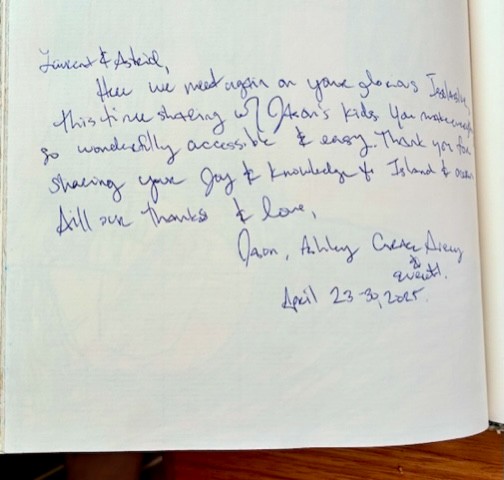 Laurent & Astrid,
Here we meet again on your glorious
this time sharing w/ Jason's kids. You make
so wonderfully accessible & easy. Thank you for
sharing your Joy & knowledge Island &
All our thanks & love,
Jason, Ashley Avery
&
April 23-30, 2025.